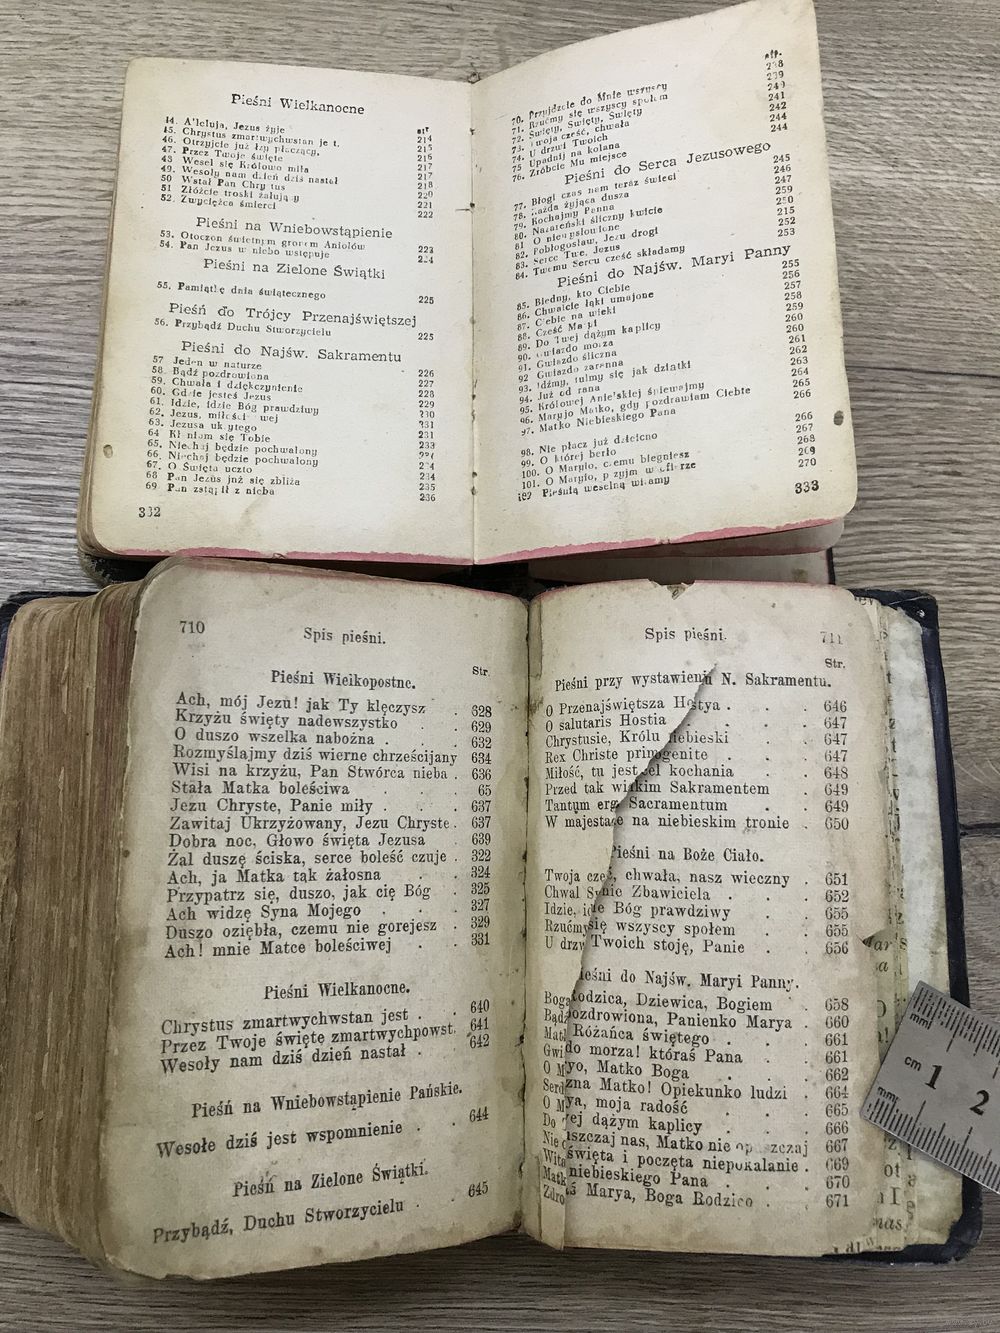 Pieśni Wielkanocne
str
44. A'leluja, Jezus żyje 214
45. Chrystus zmartwychwstan je t. 215
46. Otrzyjcie już łzy płaczący, 216
47. Przez Twoje święte 217
48 Wesel się Królowo miła 217
49. Wesoły nam dzień dziś nastał 218
50 Wstał Pan Chry tus 220
51 Złóżcie troski żałujący 221
52. Zwycięzca śmierci 222
Pieśni na Wniebowstąpienie
53. Otoczon świetnym gronem Aniołów 223
54. Pan Jezus w niebo wstępuje 224
Pieśni na Zielone Świątki
55. Pamiątkę dnia świątecznego 225
Pieśń do Trójcy Przenajświętszej
56. Przybądź Duchu Stworzycielu 225
Pieśni do Najśw. Sakramentu
57 Jeden w naturze 226
58. Bądź pozdrowiona 227
59. Chwała i dziękczynienie 228
60. Gdzie jesteś Jezus 229
61. Idzie, idzie Bóg prawdziwy 230
62. Jezus, miłości wej 231
63. Jezusa ukrytego 231
64 Kłaniam się Tobie 233
65. Niechaj będzie pochwalony
66. Niechaj będzie pochwalony 234
67. O Święta uczto 234
68 Pan Jezus już się zbliża 235
69 Pan zstąpił z nieba 236
332
str.
70. Przyjdźcie do Mnie wszyscy 238
71. Rzućmy się wszyscy społem 239
72. Święty, Święty, Święty 240
73. Twoja cześć, chwała 241
74. U drzwi Twoich 242
75 Upadnij na kolana 244
76. Zróbcie Mu miejsce 244
Pieśni do Serca Jezusowego
77. Błogi czas nam teraz świeci 245
78. Każda żyjąca dusza 246
79. Kochajmy Pana 247
80. Nazareński śliczny kwiecie 259
81 O niewysłowione 250
82. Pobłogosław, Jezu drogi 215
83. Serce Twe, Jezus 252
84. Twemu Sercu cześć składamy 253
Pieśni do Najśw. Maryi Panny
85. Biedny, kto Ciebie 255
86. Chwalcie łąki umajone 256
87. Ciebie na wieki 257
88. Cześć Maryi 258
89. Do Twej dążym kaplicy 259
90. Gwiazdo morza 260
91. Gwiazdo śliczna 260
92 Gwiazdo zaranna 261
93. Idźmy, tulmy się jak dziatki 262
94. Już od rana 263
95. Królowej Anielskiej śpiewajmy 264
96. Maryjo Matko, gdy pozdrawiam Ciebie 265
97. Matko Niebieskiego Pana 266
98. Nie płacz już dziecino 266
99. O której berło 267
100. O Maryjo, czemu biegniesz 268
101. O Maryjo, przyjm w ofierze 269
102 Pieśnią weselną witamy 270
333
710 Spis pieśni.
Pieśni Wielkopostne. Str.
Ach, mój Jezu! jak Ty klęczysz . 328
Krzyżu święty nadewszystko . 629
O duszo wszelka nabożna . . . 632
Rozmyślajmy dziś wierne chrześcijany 634
Wisi na krzyżu, Pan Stwórca nieba . 636
Stała Matka boleściwa . . . 65
Jezu Chryste, Panie miły . . . 637
Zawitaj Ukrzyżowany, Jezu Chryste . 637
Dobra noc, Głowo święta Jezusa . 639
Żal duszę ściska, serce boleść czuje . 322
Ach, ja Matka tak żałosna . . 324
Przypatrz się, duszo, jak cię Bóg . 325
Ach widzę Syna Mojego . . . 327
Duszo oziębła, czemu nie gorejesz . 329
Ach! mnie Matce boleściwej . . 331
Pieśni Wielkanocne.
Chrystus zmartwychwstan jest . . 640
Przez Twoje święte zmartwychpowst. 641
Wesoły nam dziś dzień nastał . . 642
Pieśń na Wniebowstąpienie Pańskie.
Wesołe dziś jest wspomnienie . . 644
Pieśń na Zielone Świątki.
Przybądź, Duchu Stworzycielu . . 645
Spis pieśni. 711
Str.
Pieśni przy wystawieniu N. Sakramentu.
O Przenajświętsza Hostya . . . 646
O salutaris Hostia . . . 647
Chrystusie, Królu niebieski . . 647
Rex Christe primogenite . . 647
Miłość, tu jest cel kochania . . 648
Przed tak wielkim Sakramentem . 649
Tantum ergo Sacramentum . . 649
W majestacie na niebieskim tronie . 650
Pieśni na Boże Ciało.
Twoja cześć, chwała, nasz wieczny . 651
Chwal Synie Zbawiciela . . 652
Idzie, idzie Bóg prawdziwy . . 655
Rzućmy się wszyscy społem . . 655
U drzwi Twoich stoję, Panie . . 656
Pieśni do Najśw. Maryi Panny.
Bogarodzica, Dziewica, Bogiem . 658
Bądź pozdrowiona, Panienko Marya . 660
Różańca świętego . . . 661
Gwiazdo morza! któraś Pana . . 661
O Maryo, Matko Boga . . . 662
Serdeczna Matko! Opiekunko ludzi . 664
O Marya, moja radość . . . 665
Do Twej dążym kaplicy . . . 666
Nie opuszczaj nas, Matko nie opuszczaj 667
Witaj święta i poczęta niepokalanie . 669
Matko niebieskiego Pana . . . 670
Zdrowaś Marya, Boga Rodzico . . 671
mm
cm 1 2
mm